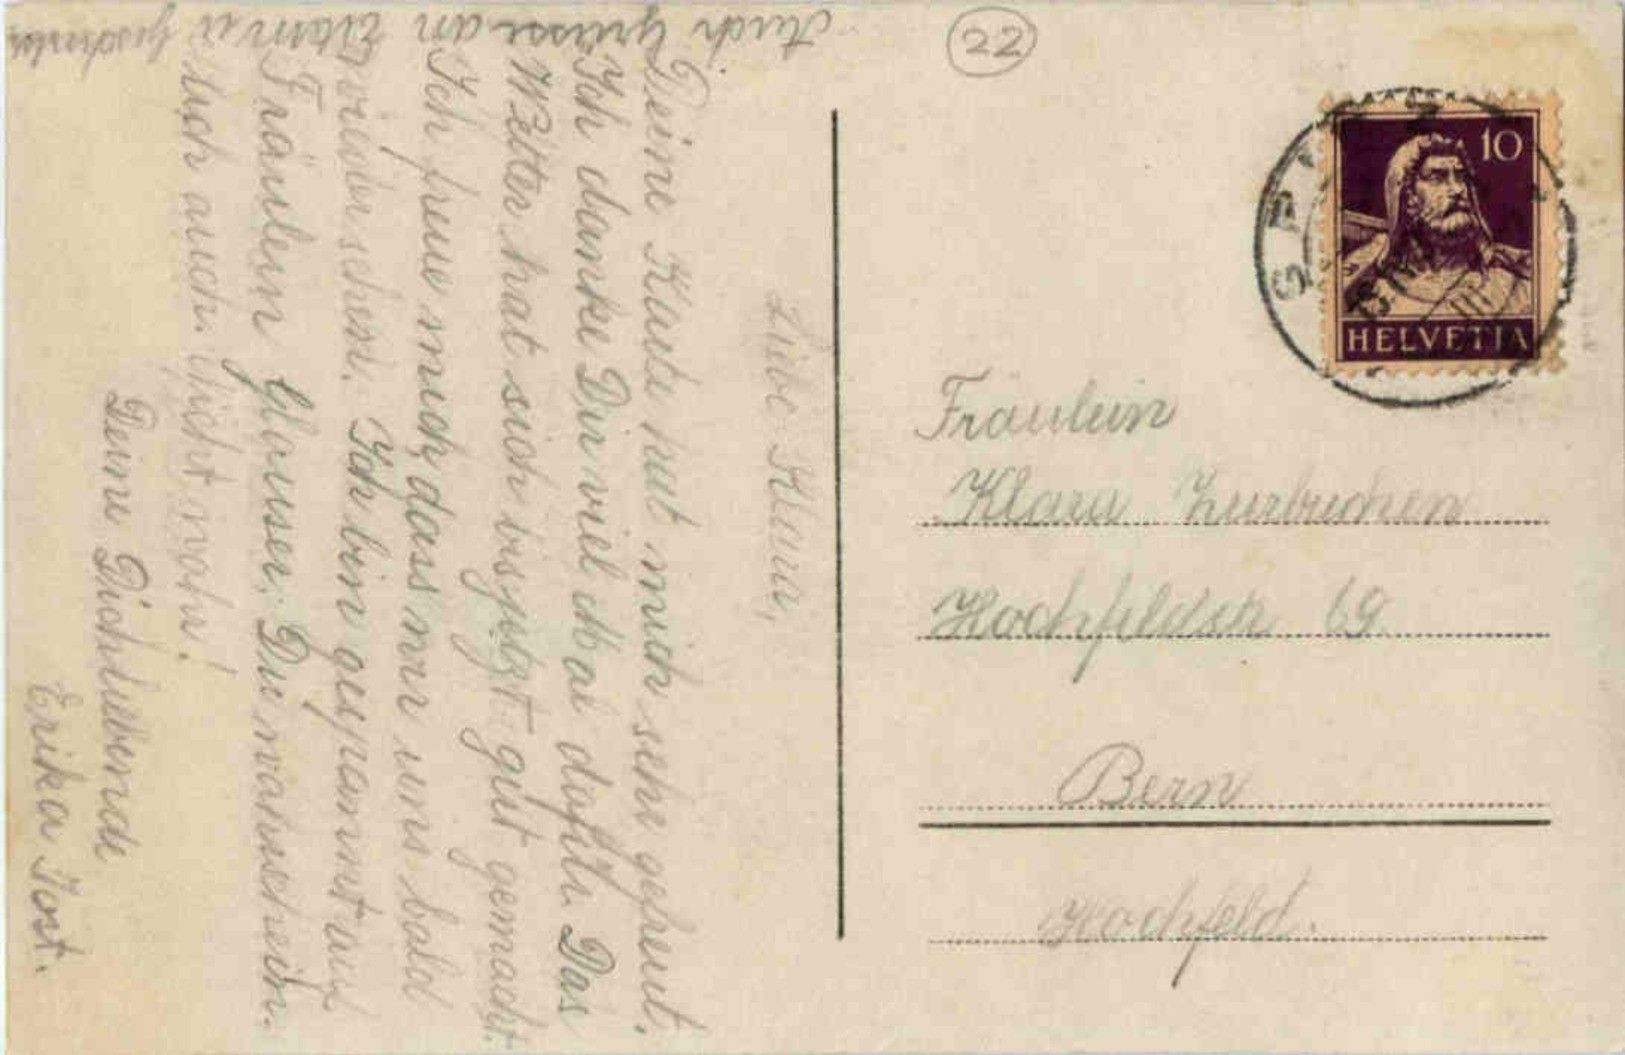 Liebe Klara,
Deine Karte hat mich sehr gefreut.
Ich danke Dir viel Mal dafür. Das
Wetter hat sich bis jetzt gut gemacht.
Ich freue mich, dass wir uns bald
wiedersehen. Ich bin gespannt auf
Fräulein Glauser. Du wahrschein-
lich auch, nicht wahr!
Deine Dichliebende
Erika Jost.
Auch Grüsse an Mama u.
22
10
HELVETIA
Fräulein
Klara Zurbuchen
Hochfeldstr. 69
Bern
Hochfeld.